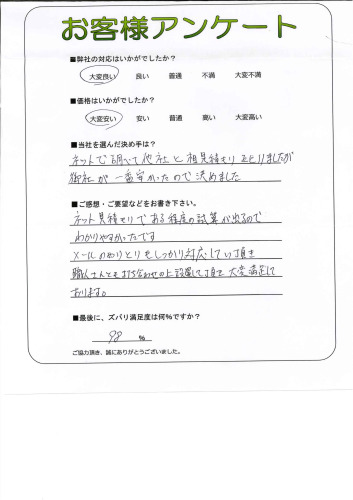 お客様アンケート
■弊社の対応はいかがでしたか?
大変良い 良い 普通 不満 大変不満
■価格はいかがでしたか?
大変安い 安い 普通 高い 大変高い
■当社を選んだ決め手は?
ネットで調べて他社と相見積もりを取りましたが
御社が一番安かったので決めました
■ご感想・ご要望などをお書き下さい。
ネット見積もりである程度の試算が出るので
わかりやすかったです
メールのやりとりもしっかり対応して頂き
職人さんとも打ち合わせの上設置して頂き大変満足して
おります。
■最後に、ズバリ満足度は何%ですか?
98 %
ご協力頂き、誠にありがとうございました。